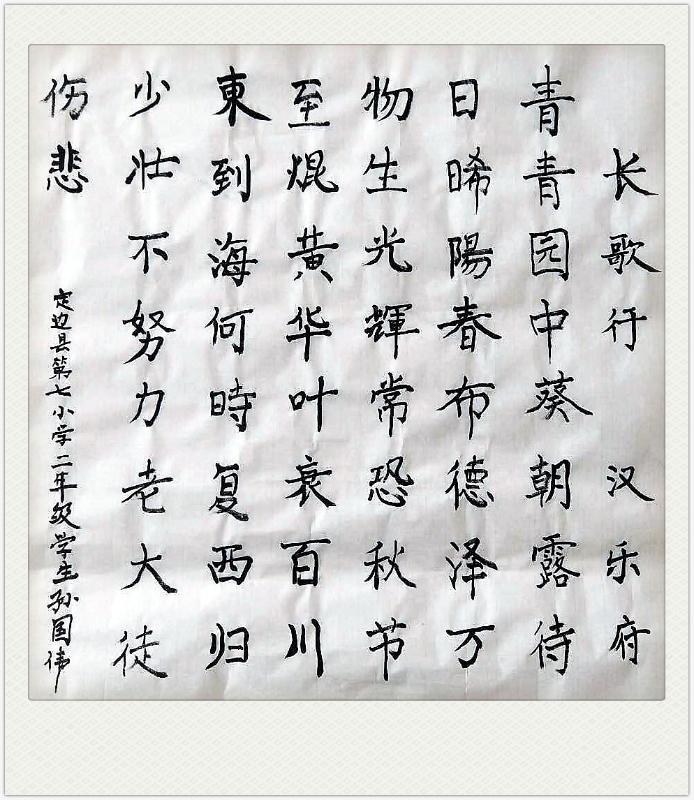 长歌行 汉乐府
青青园中葵朝露待
日晞陽春布德泽万
物生光輝常恐秋节
至焜黄华叶衰百川
東到海何時复西归
少壮不努力老大徒
伤悲
定边县第七小学二年级学生孙国伟